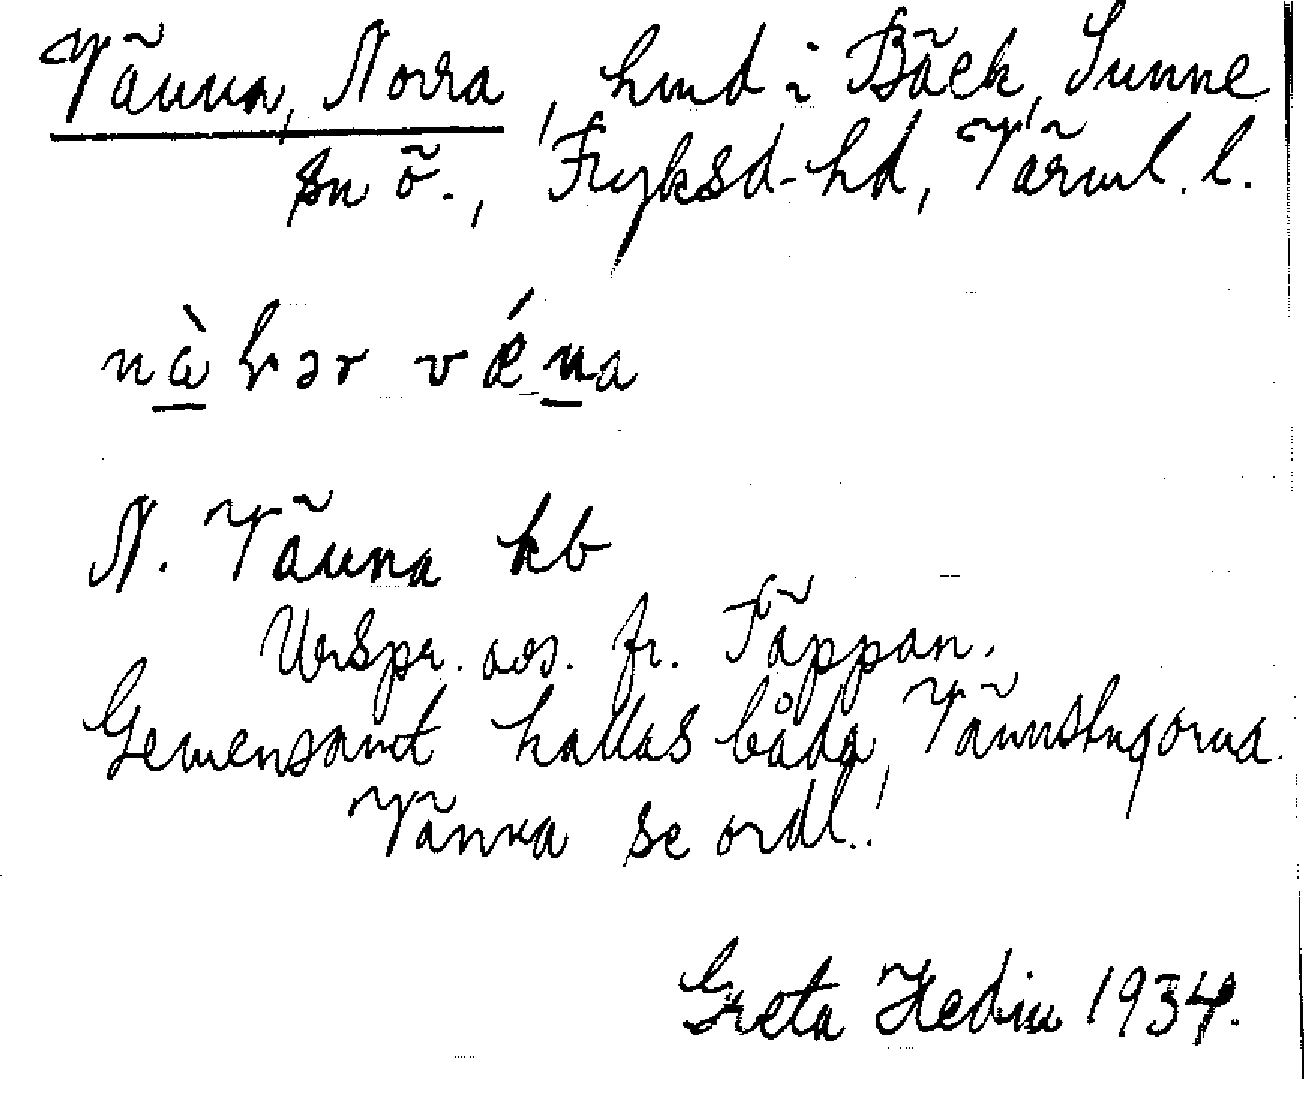 Vänna, Norra, hmd i Bäck, Sunne
sn ö., Fryksd. hd, Värml. l.
N. Vänna kb
Urspr. avs. fr. Täppan.
Gemensamt kallas båda Vännstugorna.
Vänna se ordl.!
Greta Hedin 1934.